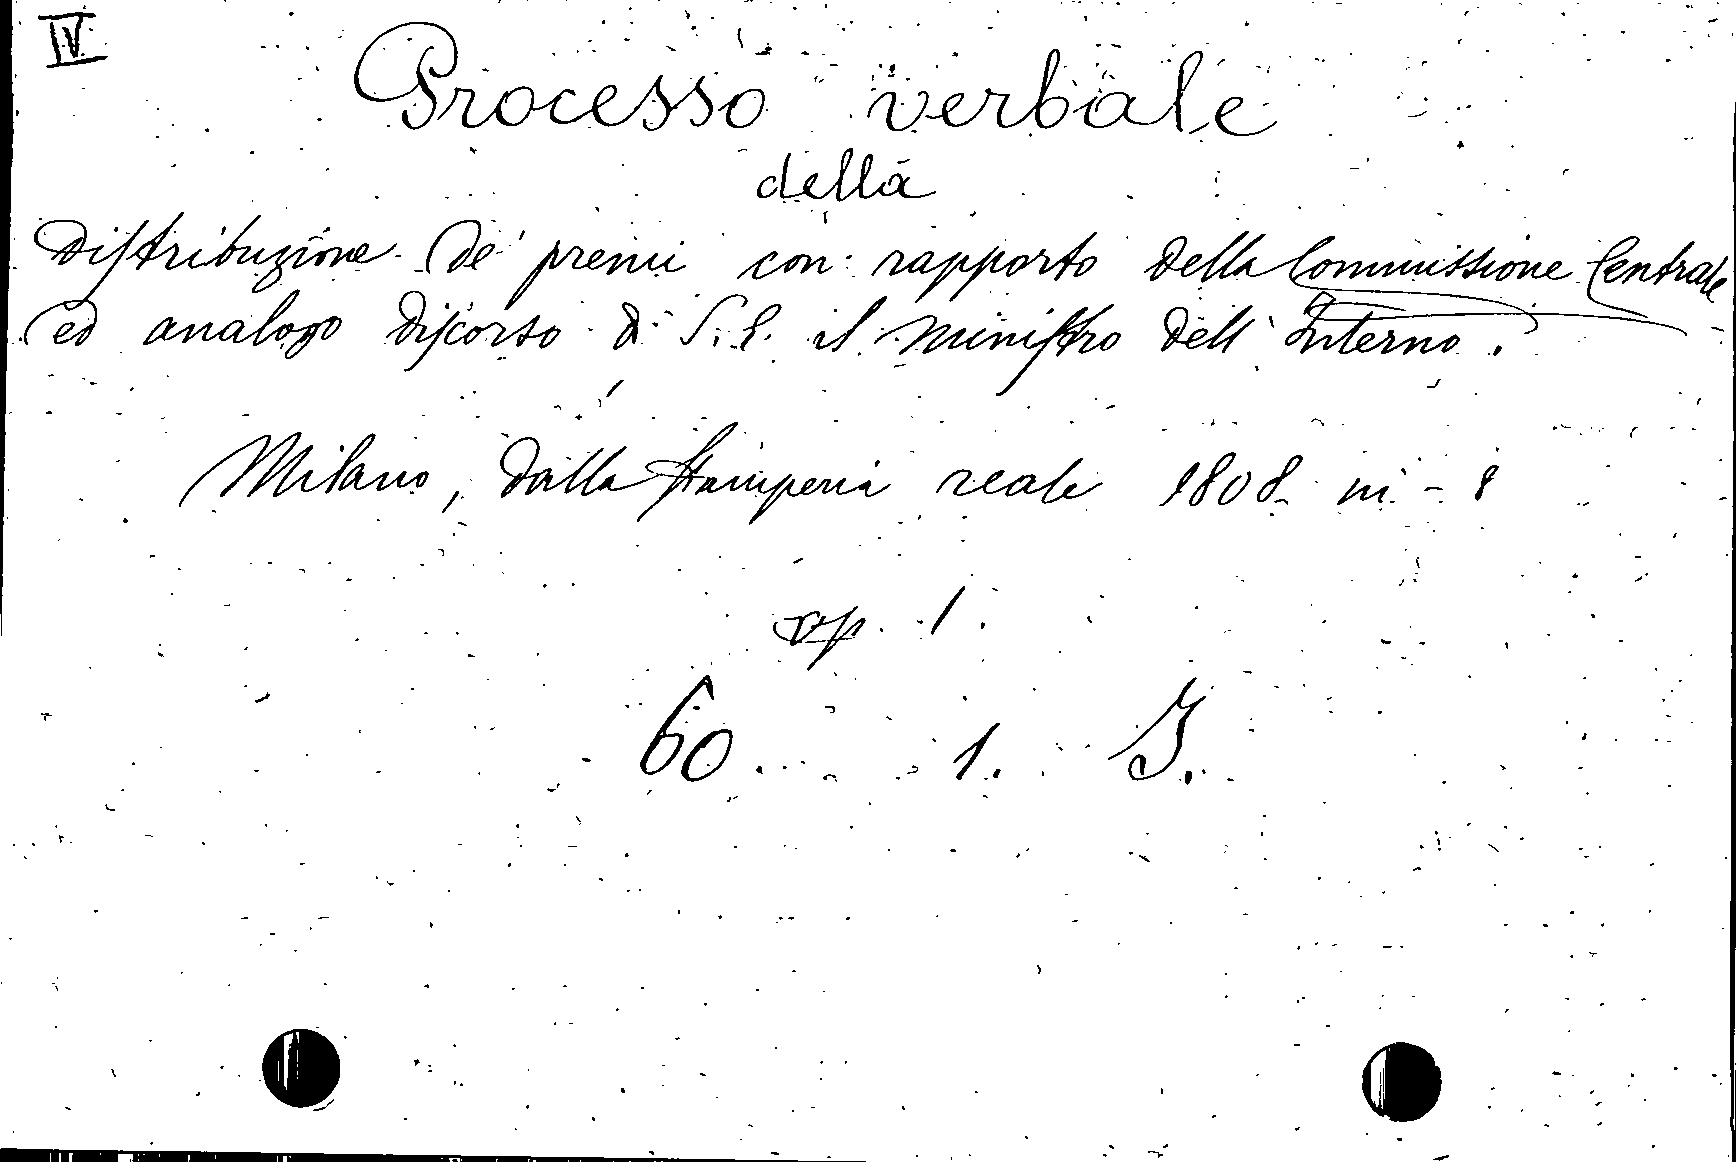 IV
Processo verbale
della
Distribuzione de' premi con rapporto della Commissione Centrale
ed analogo discorso di S. E. il ministro dell' Interno.
Milano, dalla stamperia reale 1808 in-8
op. 1.
60. 1. J.